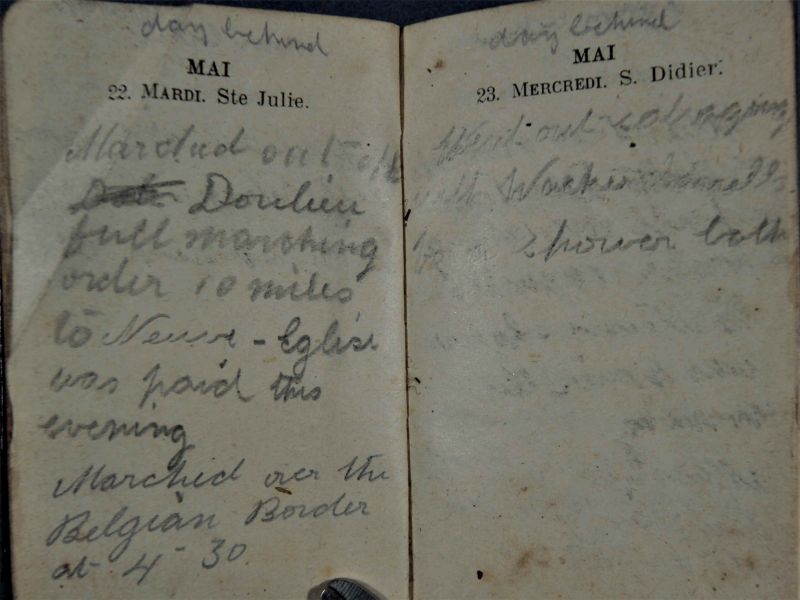 day behind
MAI
22. MARDI. Ste Julie.
Marched out of
Doulieu
full marching
order 10 miles
to Neuve-Eglise
was paid this
evening
Marched over the
Belgian Border
at 4-30
day behind
MAI
23. MERCREDI. S. Didier.
Went out
with
for a shower bath